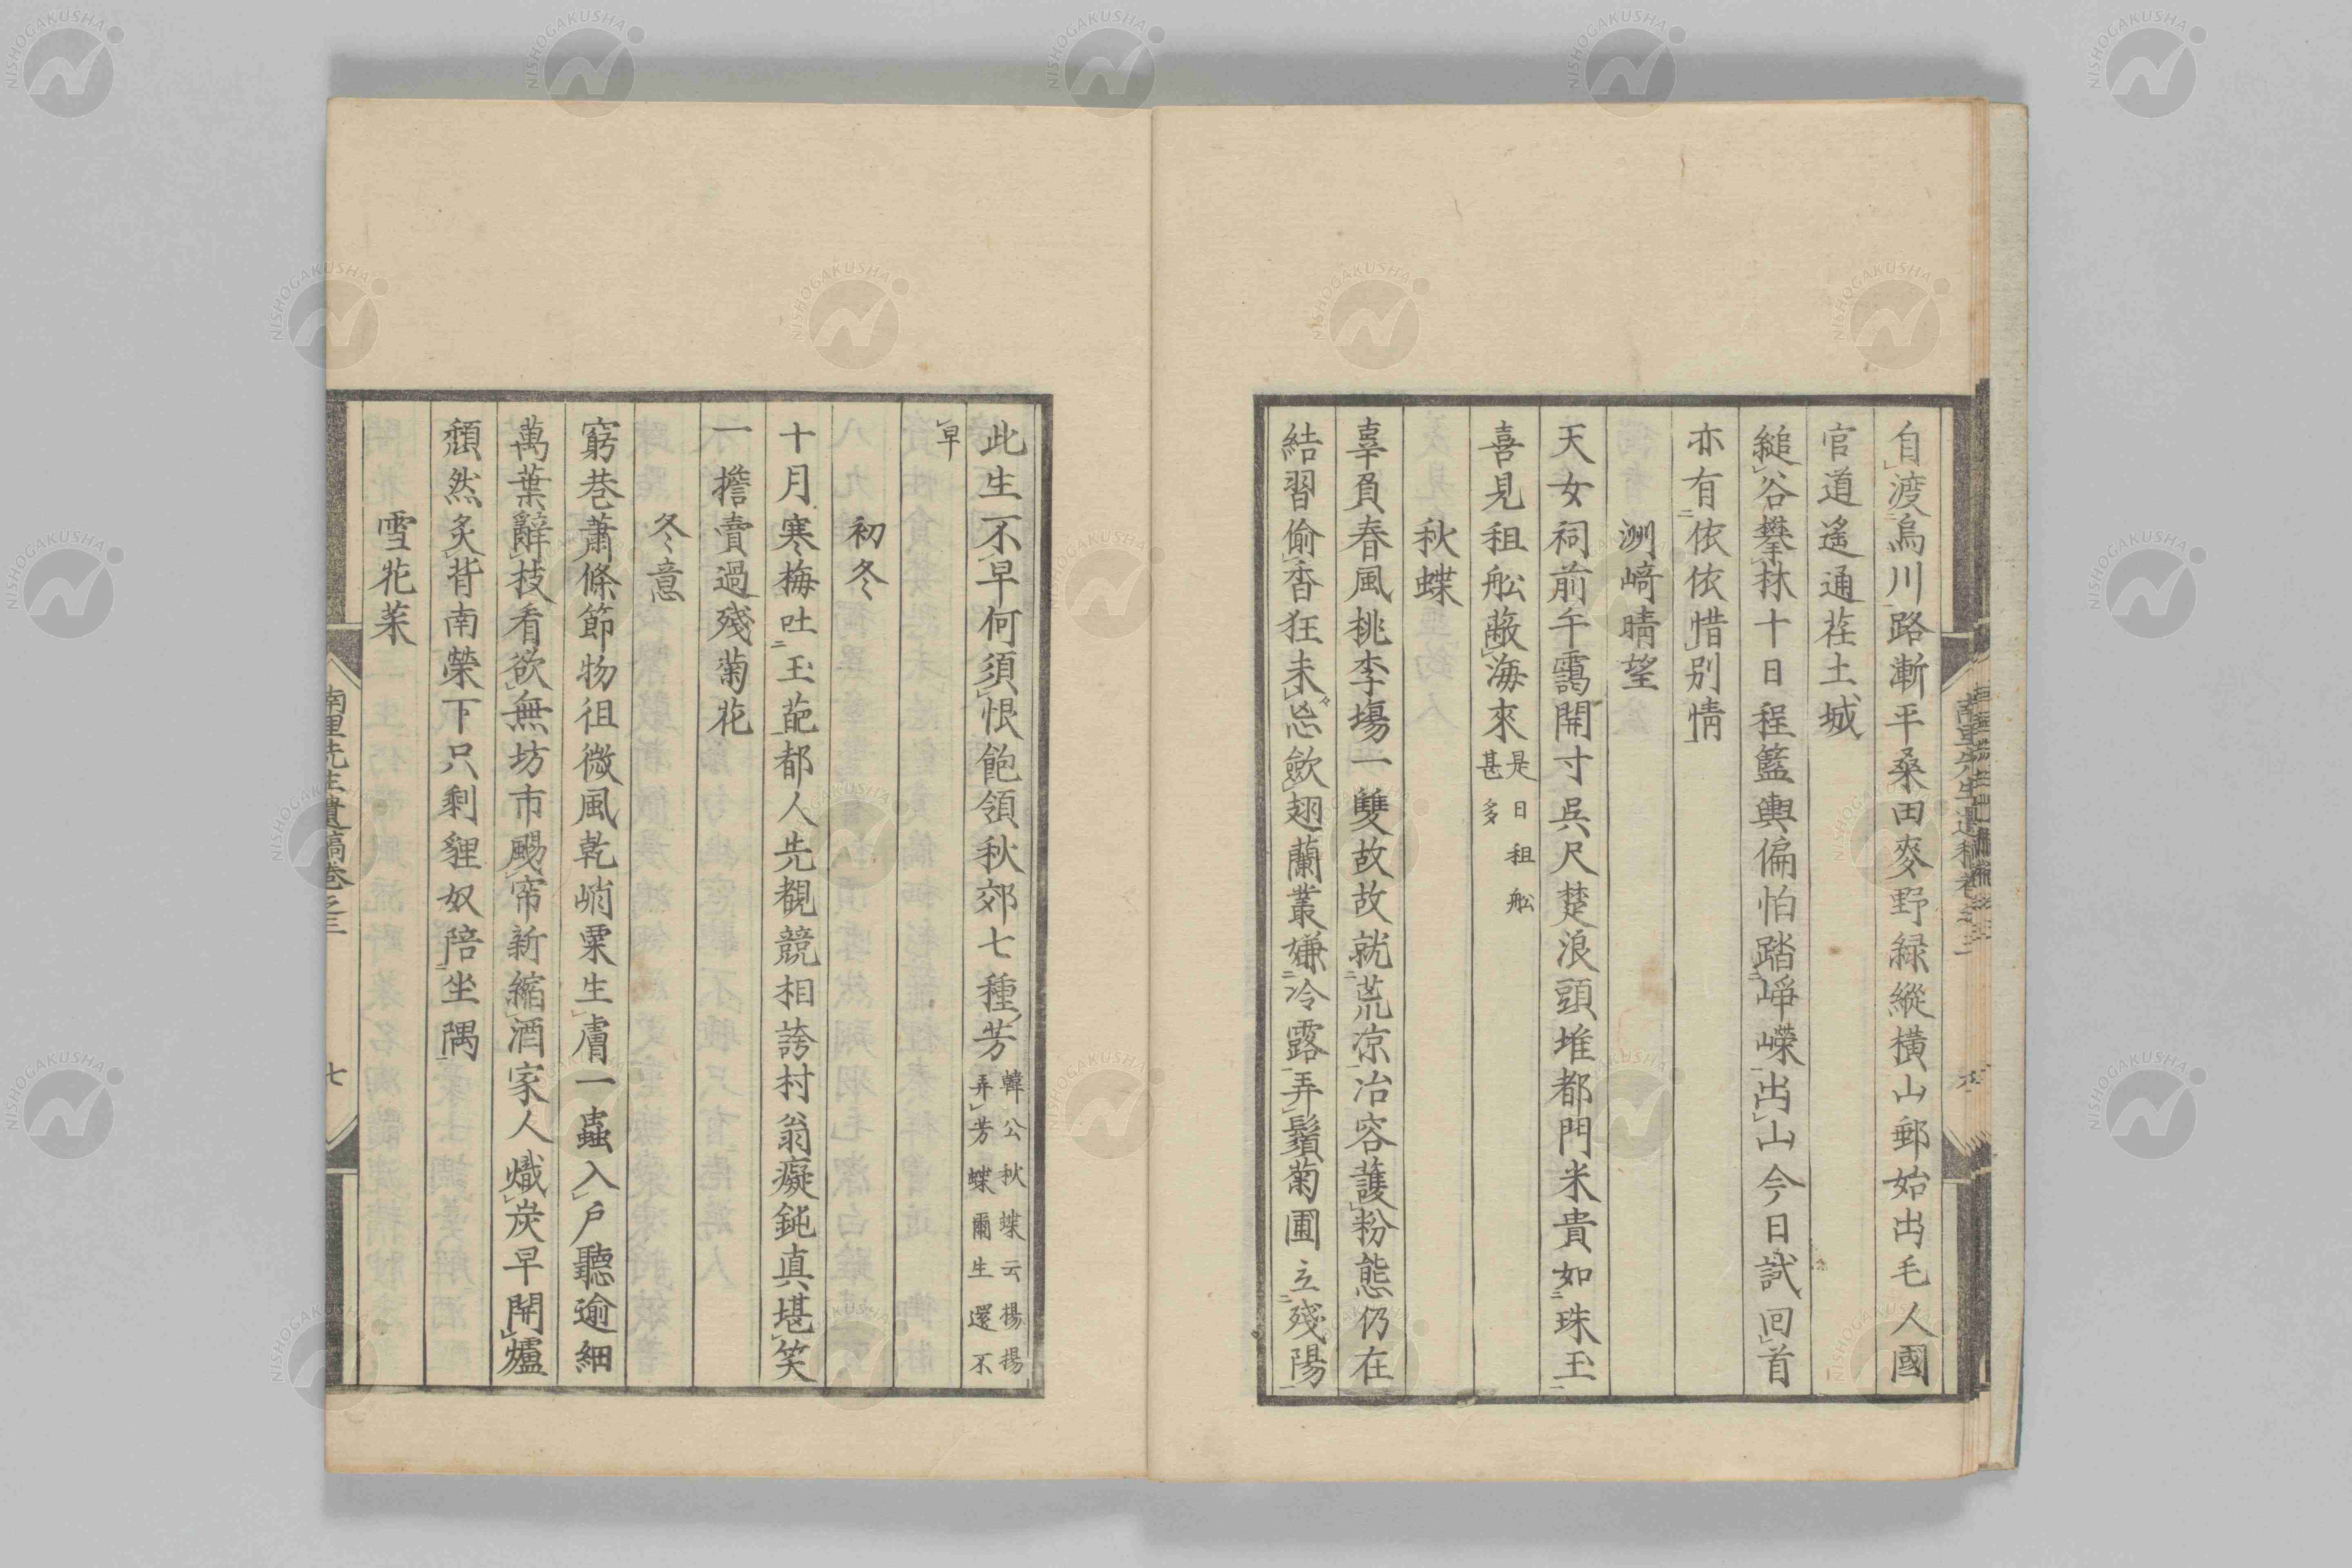 自渡烏川路漸平桑田麥野緑縱橫山郵始出毛人國
官道遙通在土城
縋谷攀林十日程籃輿偏怕踏崢嶸出山今日試回首
亦有依依惜別情
洲﨑晴望
天女祠前午靄開寸呉尺楚浪頭堆都門米貴如珠玉
喜見租船蔽海來是日租船甚多
秋蝶
辜負春風桃李場一雙故故就荒凉冶容護粉態仍在
結習偷香狂未忘歛翅蘭叢嫌冷露弄鬚菊圃立殘陽
此生不早何須恨飽領秋郊七種芳韓公秋蝶云揚揚弄芳蝶爾生還不
早
初冬
十月寒梅吐玉葩都人先覩競相誇村翁癡鈍真堪笑
一擔賣過殘菊花
冬意
窮巷蕭條節物徂微風乾峭粟生膚一蟲入戶聽逾細
萬葉辭枝看欲無坊市颺帘新縮酒家人熾炭早開爐
頹然炙背南榮下只剩貍奴陪坐隅
雪花菜
南里先生遺稿卷之三
七
NISHOGAKUSHA